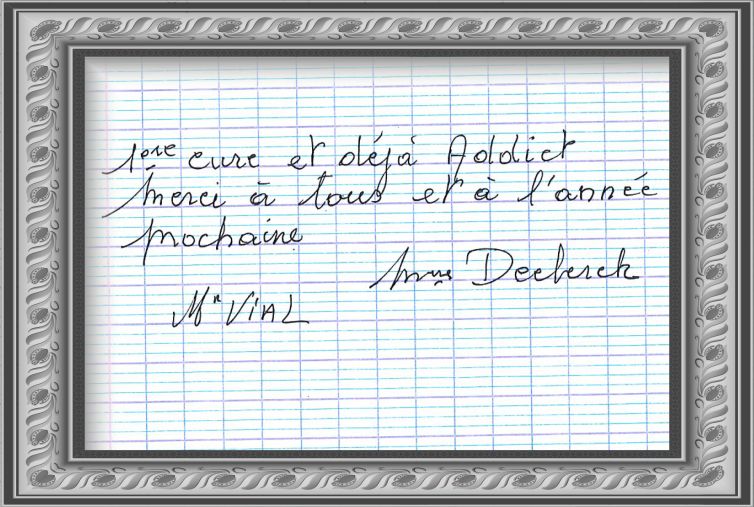 1ere cure et déjà Addict
Merci à tous et à l'année
prochaine
Mme Declerck
Mr VIAL